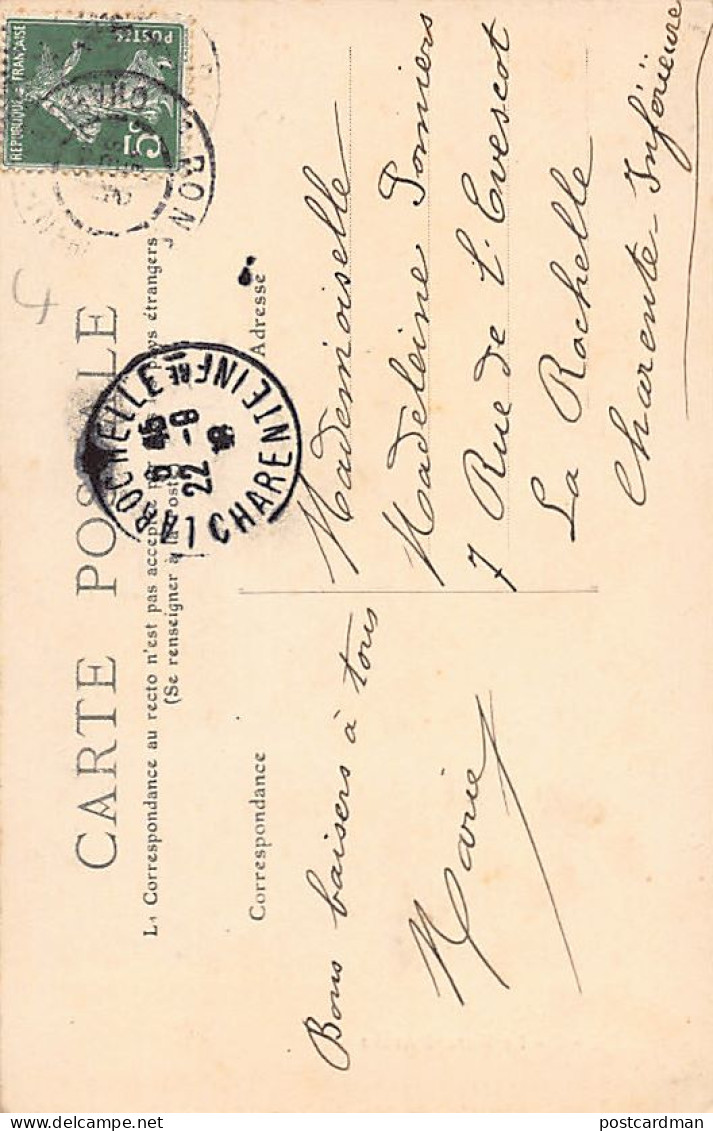 CARTE POSTALE
La Correspondance au recto n'est pas acceptée par pays étrangers
(Se renseigner à la Poste)
Correspondance
Adresse
REPUBLIQUE FRANÇAISE
POSTES
5c
LA ROCHELLE
5 45
22 - 8
CHARENTE INFRE
Bons baisers à tous
Marie
Mademoiselle
Madeleine Pomiers
7 Rue de l'Evescot
La Rochelle
Charente-Inférieure
4
postcardman